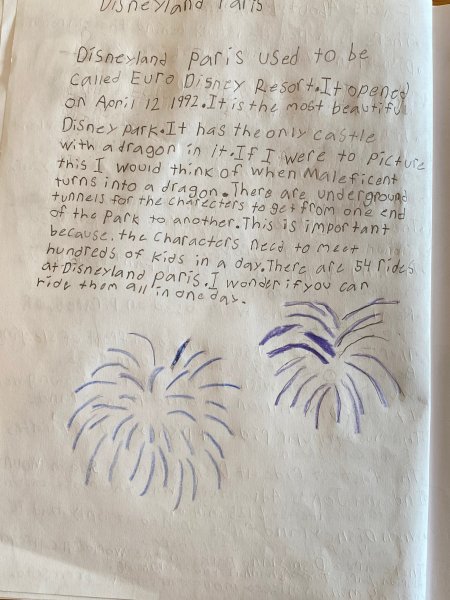 Disneyland Paris
Disneyland paris used to be
called Euro Disney Resort. It opened
on April 12 1992. It is the most beautiful
Disney park. It has the only castle
with a dragon in it. If I were to picture
this I would think of when Maleficent
turns into a dragon. There are underground
tunnels for the charecters to get from one end
of the park to another. This is important
because, the characters need to meet
hundreds of kids in a day. There are 54 rides
at Disneyland paris. I wonder if you can
ride them all in one day.